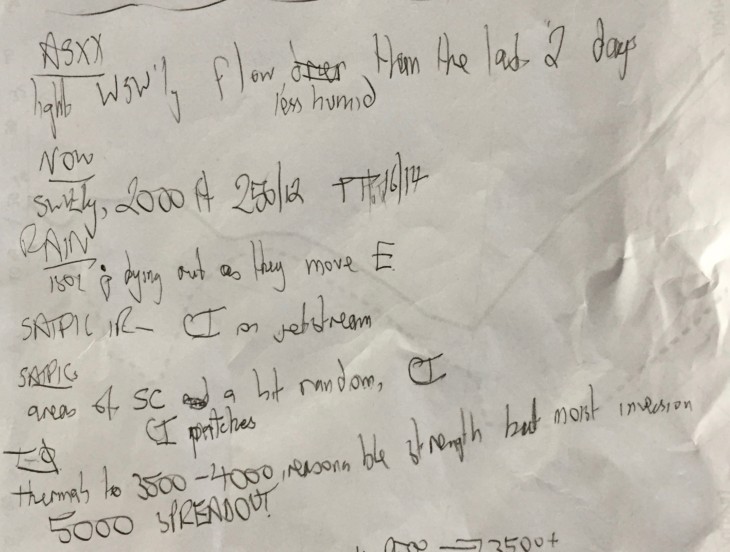 ASXX
light WSW'ly flow than the last 2 days
less humid
NOW
SW'ly, 2000 ft 250/12 16/14
RAIN
ISOL dying out as they move E.
SATPIC IR - CI on jetstream
SATPIC
areas of SC a bit random, CI
CI patches
thermals to 3500 - 4000, reasonable strength but moist inversion
5000 SPREADOUT
3500+